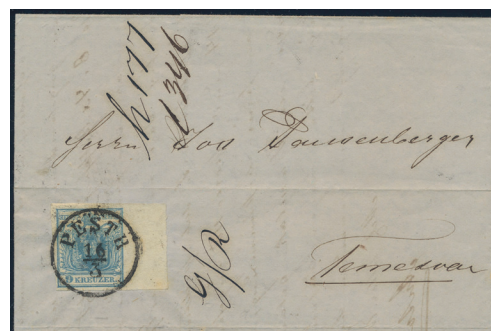 h 177
1346
Herrn Jos Dausenberger
PESTH
16
3
9 KREUZER
9/2
Temesvar